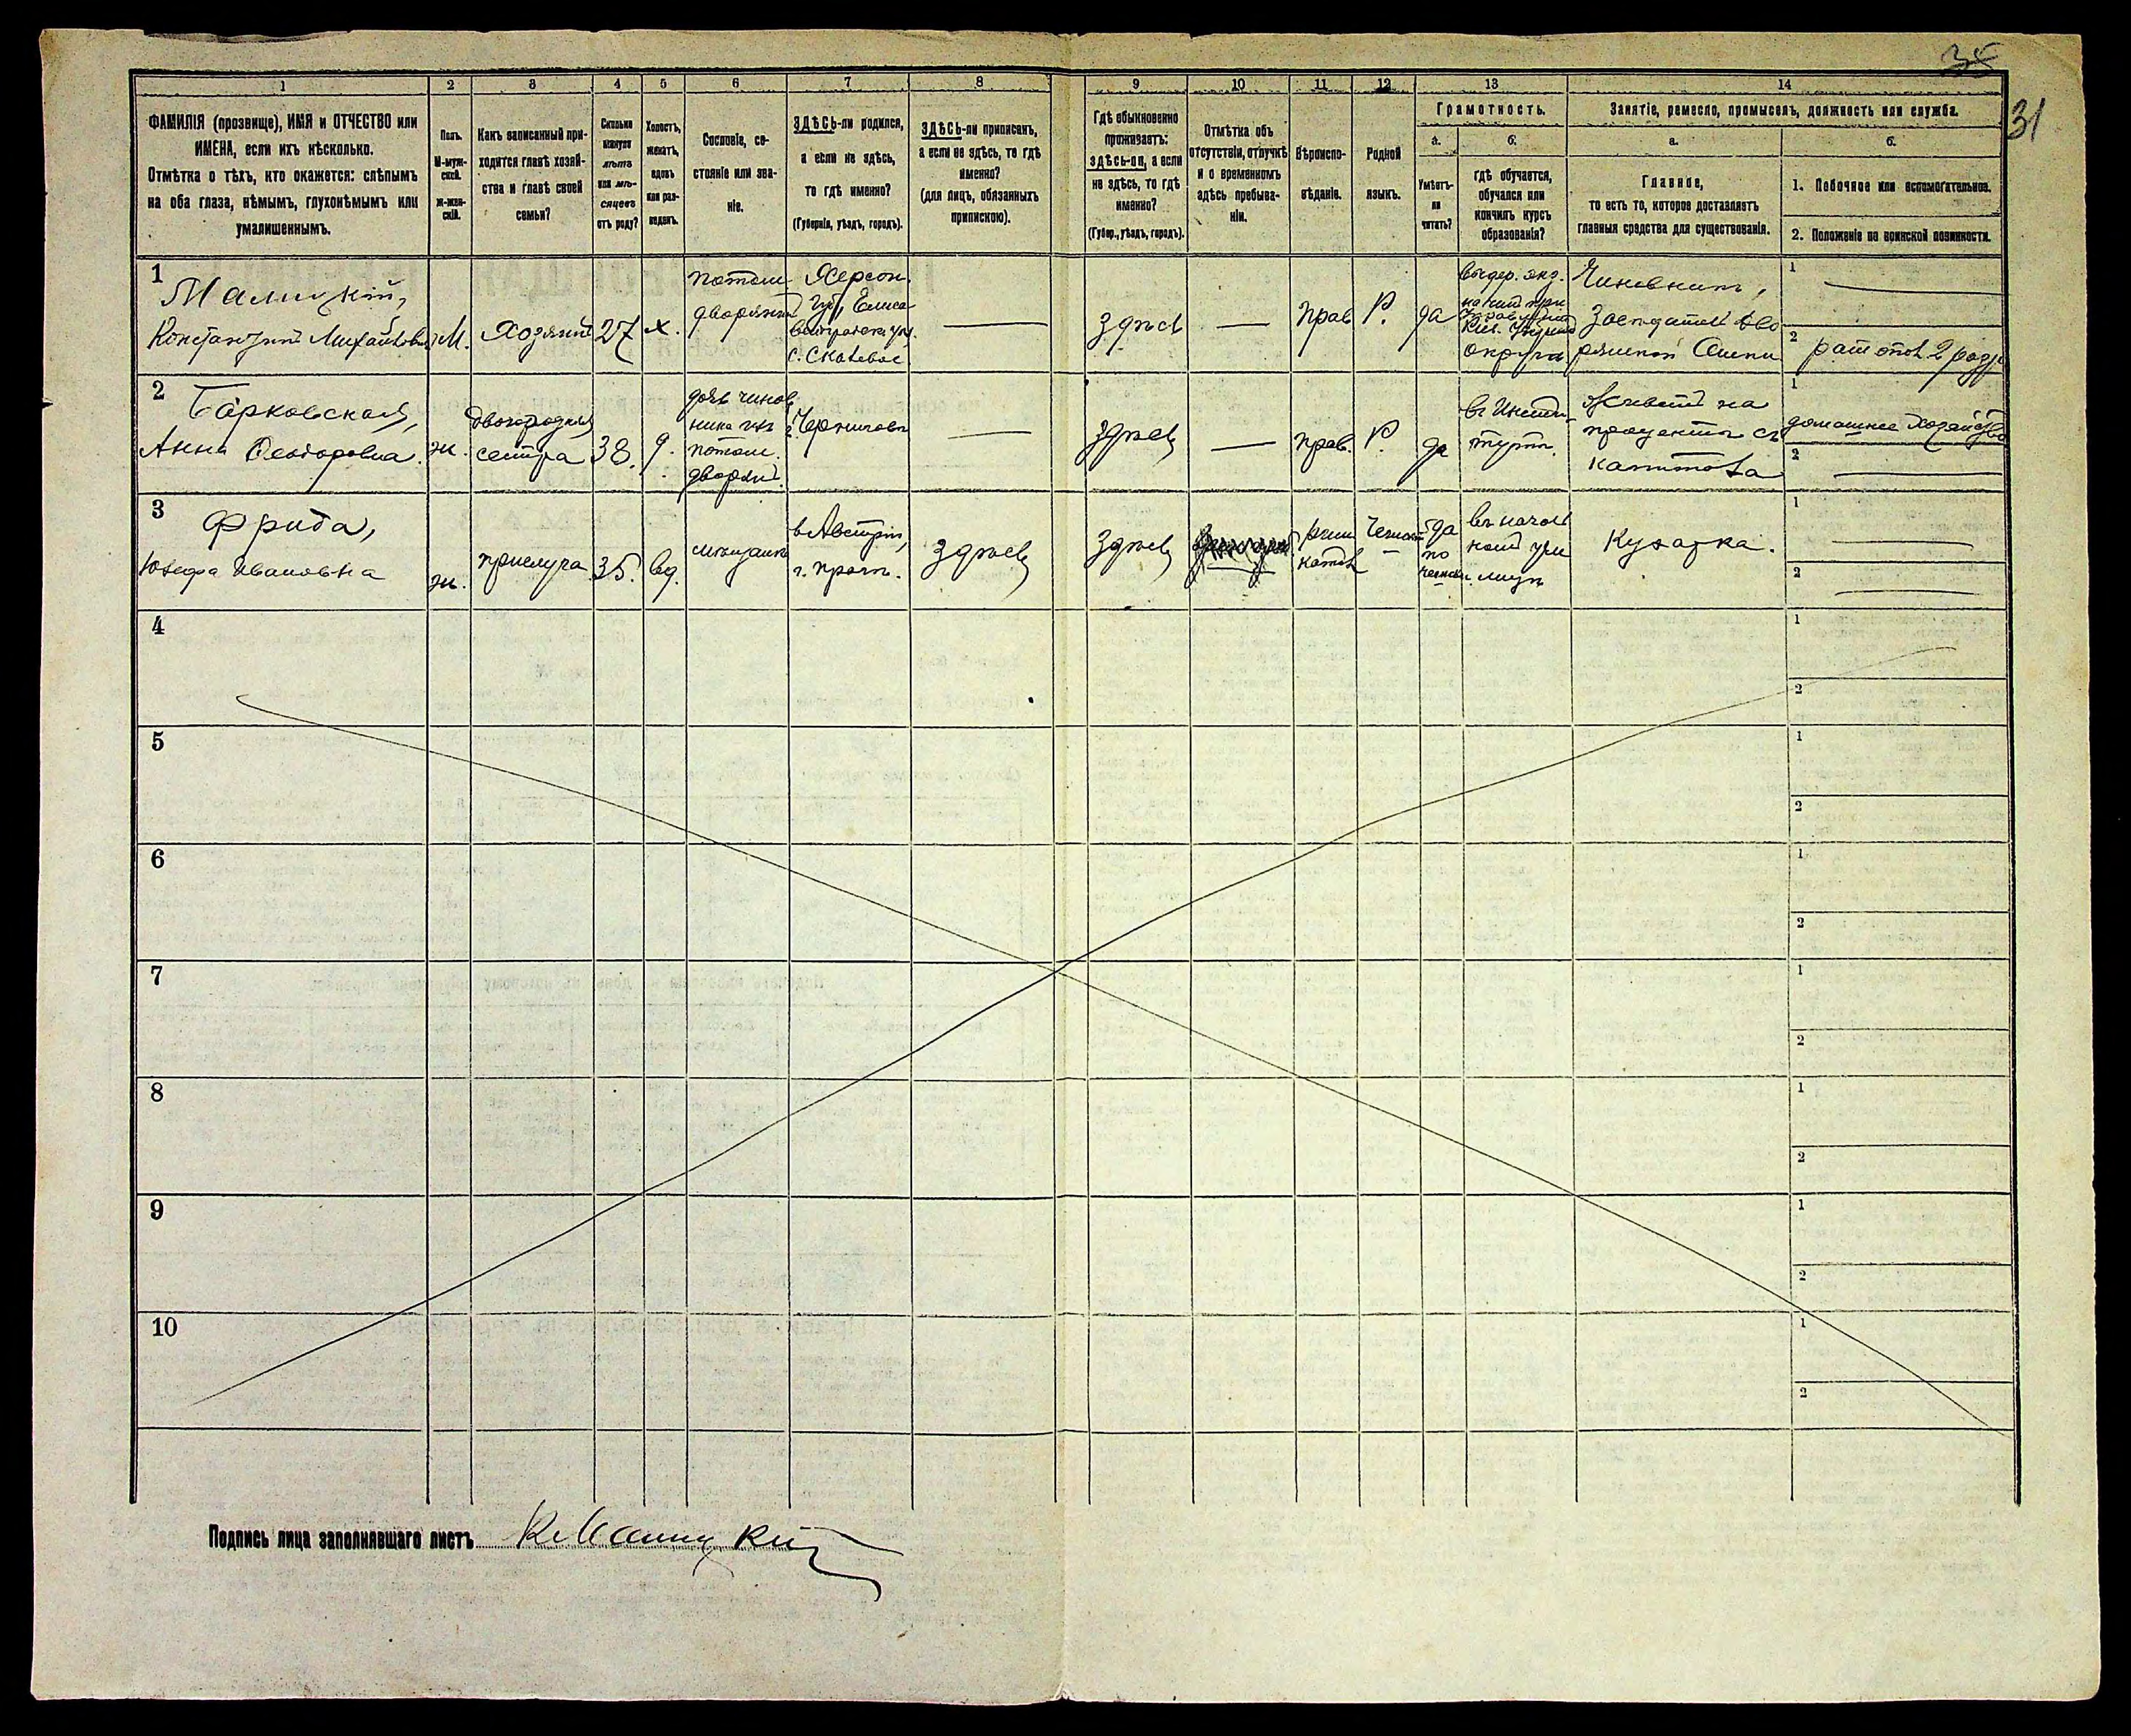 35
31
1
2
3
4
5
6
7
8
9
10
11
12
13
14
ФАМИЛІЯ (прозвище), ИМЯ и ОТЧЕСТВО или
ИМЕНА, если ихъ нѣсколько.
Отмѣтка о тѣхъ, кто окажется: слѣпымъ
на оба глаза, нѣмымъ, глухонѣмымъ или
умалишеннымъ.
Полъ.
М-муж-
ской.
Ж-жен-
скій.
Какъ записанный при-
ходится главѣ хозяй-
ства и главѣ своей
семьи?
Сколько
минуло
лѣтъ
или мѣ-
сяцевъ
отъ роду?
Холостъ,
женатъ,
вдовъ
или раз-
веденъ.
Сословіе, со-
стояніе или зва-
ніе.
ЗДѢСЬ-ли родился,
а если не здѣсь,
то гдѣ именно?
(Губернія, уѣздъ, городъ).
ЗДѢСЬ-ли приписанъ,
а если не здѣсь, то гдѣ
именно?
(для лицъ, обязанныхъ
припискою).
Гдѣ обыкновенно
проживаетъ:
здѣсь-ли, а если
не здѣсь, то гдѣ
именно?
(Губер., уѣздъ, городъ).
Отмѣтка объ
отсутствіи, отлучкѣ
и о временномъ
здѣсь пребыва-
ніи.
Вѣроиспо-
вѣданіе.
Родной
языкъ.
Грамотность.
а.
Умѣетъ-
ли
читать?
б.
гдѣ обучается,
обучался или
кончилъ курсъ
образованія?
Занятіе, ремесло, промыселъ, должность или служба.
а.
Главное,
то есть то, которое доставляетъ
главныя средства для существованія.
б.
1. Побочное или вспомогательное.
2. Положеніе по воинской повинности.
1
Малицкій,
Константинъ Михайлов.
М.
Хозяинъ
27
х.
потом
дворянинъ
Херсон.
губ., Елиса
ветградск. у.
с. Скалевое
здѣсь
Прав
Р.
да
выдер. экз.
округа
Чиновникъ,
1
2
рат опол 2 разр
2
Барковская,
Анна Ѳеодоровна.
ж.
двоюродная
сестра
38.
д.
дочь чинов
ника изъ
потом.
дворян.
г. Черниговъ
здѣсь
прав.
Р.
да
въ Инсти-
тутѣ.
Живетъ на
проценты съ
капитала
1
домашнее хозяйство
2
3
Фрида,
Юзефа Ивановна
ж.
прислуга
35.
вд.
мѣщанка
въ Австріи,
г. Прагѣ.
здѣсь
здѣсь
рим
катол
Чешск
да
по
чешски.
въ началь
ном учи
лищѣ
Кухарка.
1
2
4
1
2
5
1
2
6
1
2
7
1
2
8
1
2
9
1
2
10
1
2
Подпись лица заполнявшаго листъ К Малицкій